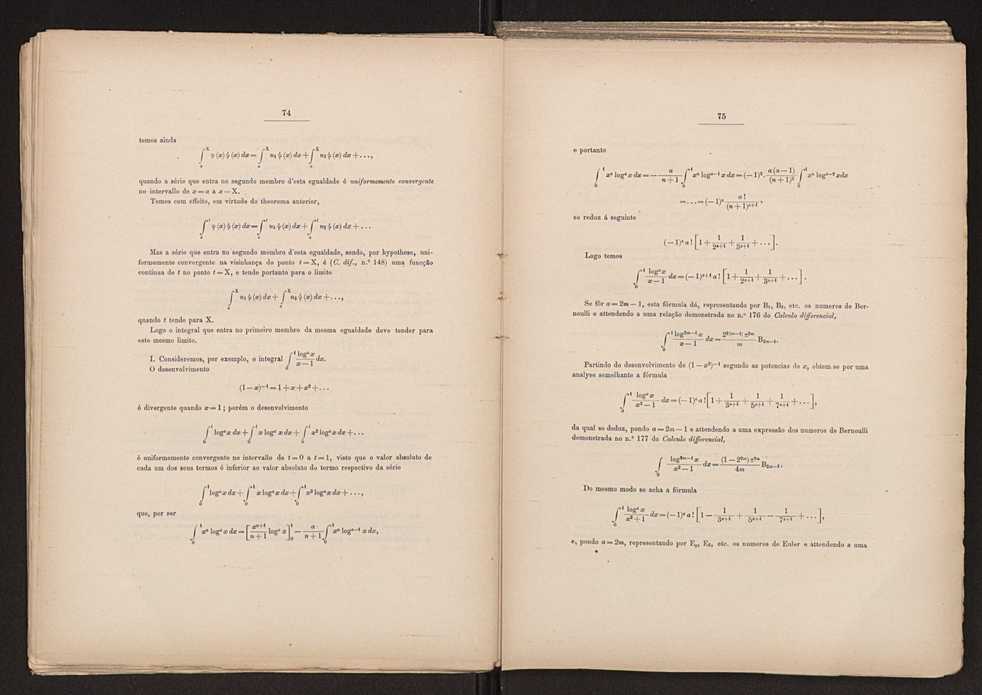 74
temos ainda
∫ₐ^X φ(x) ψ(x) dx = ∫ₐ^X u₁ ψ(x) dx + ∫ₐ^X u₂ ψ(x) dx + ...,
quando a série que entra no segundo membro d'esta egualdade é uniformemente convergente
no intervallo de x = a a x = X.
Temos com effeito, em virtude do theorema anterior,
∫ₐ^t φ(x) ψ(x) dx = ∫ₐ^t u₁ ψ(x) dx + ∫ₐ^t u₂ ψ(x) dx + ...
Mas a série que entra no segundo membro d'esta egualdade, sendo, por hypothese, uni-
formemente convergente na visinhança do ponto t = X, é (C. dif., n.º 148) uma funcção
continua de t no ponto t = X, e tende portanto para o limite
∫ₐ^X u₁ ψ(x) dx + ∫ₐ^X u₂ ψ(x) dx + ...,
quando t tende para X.
Logo o integral que entra no primeiro membro da mesma egualdade deve tender para
este mesmo limite.
I. Consideremos, por exemplo, o integral ∫₀^1 logᵃx / (x − 1) dx.
O desenvolvimento
(1 − x)⁻¹ = 1 + x + x² + ...
é divergente quando x = 1; porém o desenvolvimento
∫₀^t logᵃ x dx + ∫₀^t x logᵃ x dx + ∫₀^t x² logᵃ x dx + ...
é uniformemente convergente no intervallo de t = 0 a t = 1, visto que o valor absoluto de
cada um dos seus termos é inferior ao valor absoluto do termo respectivo da série
∫₀^1 logᵃ x dx + ∫₀^1 x logᵃ x dx + ∫₀^1 x² logᵃ x dx + ...,
que, por ser
∫₀^1 xⁿ logᵃ x dx = [xⁿ⁺¹ / (n + 1) logᵃ x]₀^1 − a / (n + 1) ∫₀^1 xⁿ logᵃ⁻¹ x dx,
75
e portanto
∫₀^1 xⁿ logᵃ x dx = − a / (n + 1) ∫₀^1 xⁿ logᵃ⁻¹ x dx = (−1)² a(a − 1) / (n + 1)² ∫₀^1 xⁿ logᵃ⁻² x dx
= ... = (−1)ᵃ a! / (n + 1)ᵃ⁺¹,
se reduz á seguinte
(−1)ᵃ a! [1 + 1/2ᵃ⁺¹ + 1/3ᵃ⁺¹ + ...].
Logo temos
∫₀^1 logᵃ x / (x − 1) dx = (−1)ᵃ⁺¹ a! [1 + 1/2ᵃ⁺¹ + 1/3ᵃ⁺¹ + ...].
Se fôr a = 2m − 1, esta fórmula dá, representando por B₁, B₃, etc. os numeros de Ber-
noulli e attendendo a uma relação demonstrada no n.º 176 do Calculo differencial,
∫₀^1 log²ᵐ⁻¹ x / (x − 1) dx = 2²⁽ᵐ⁻¹⁾ π²ᵐ / m B₂ₘ₋₁.
Partindo do desenvolvimento de (1 − x²)⁻¹ segundo as potencias de x, obtem-se por uma
analyse semelhante a fórmula
∫₀^1 logᵃ x / (x² − 1) dx = (−1)ᵃ a! [1 + 1/3ᵃ⁺¹ + 1/5ᵃ⁺¹ + 1/7ᵃ⁺¹ + ...],
da qual se deduz, pondo a = 2m − 1 e attendendo a uma expressão dos numeros de Bernoulli
demonstrada no n.º 177 do Calculo differencial,
∫₀ log²ᵐ⁻¹ x / (x² − 1) dx = (1 − 2²ᵐ) π²ᵐ / 4m B₂ₘ₋₁.
Do mesmo modo se acha a fórmula
∫₀^1 logᵃ x / (x² + 1) dx = (−1)ᵃ a! [1 − 1/3ᵃ⁺¹ + 1/5ᵃ⁺¹ − 1/7ᵃ⁺¹ + ...],
e, pondo a = 2m, representando por E₂, E₄, etc. os numeros de Euler e attendendo a uma
*